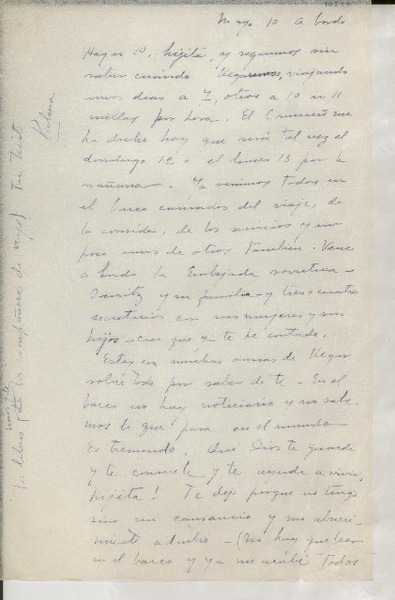 Mayo 10 A bordo
Hoy es 10, hijita, y seguimos sin
saber cuándo llegaremos, viajando
unos días a 7, otros a 10 u 11
millas por hora. El Comisario me
ha dicho hoy que será tal vez el
domingo 12 o el lunes 13 por la
mañana. Ya venimos todos en
el barco cansados del viaje, de
la comida, de los servicios y un
poco unos de otros también. Viene
a bordo la Embajada soviética –
y su familia – y tres o cuatro
secretarios con sus mujeres y sus
hijos – creo que ya te he contado.
Estoy con muchas ansias de llegar
sobre todo por saber de ti – En el
barco no hay noticiario y no sabe-
mos lo que pasa en el mundo
Es tremendo. Que Dios te guarde
y te consuele y te ayude a vivir,
hijita! Te dejo porque no tengo
sino un cansancio y un aburri-
miento adentro – (No hay que leer
en el barco y ya me acabé todos
los libros míos y de los compañeros de viaje) Tu Tuist
Palma